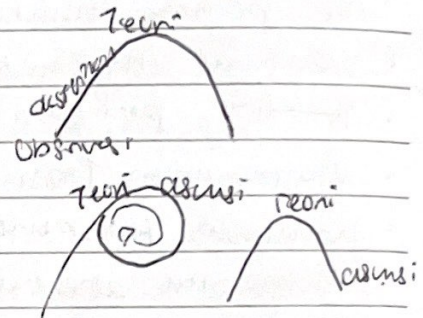 Teori
Observasi
Teori asumsi
?
Teori
asumsi